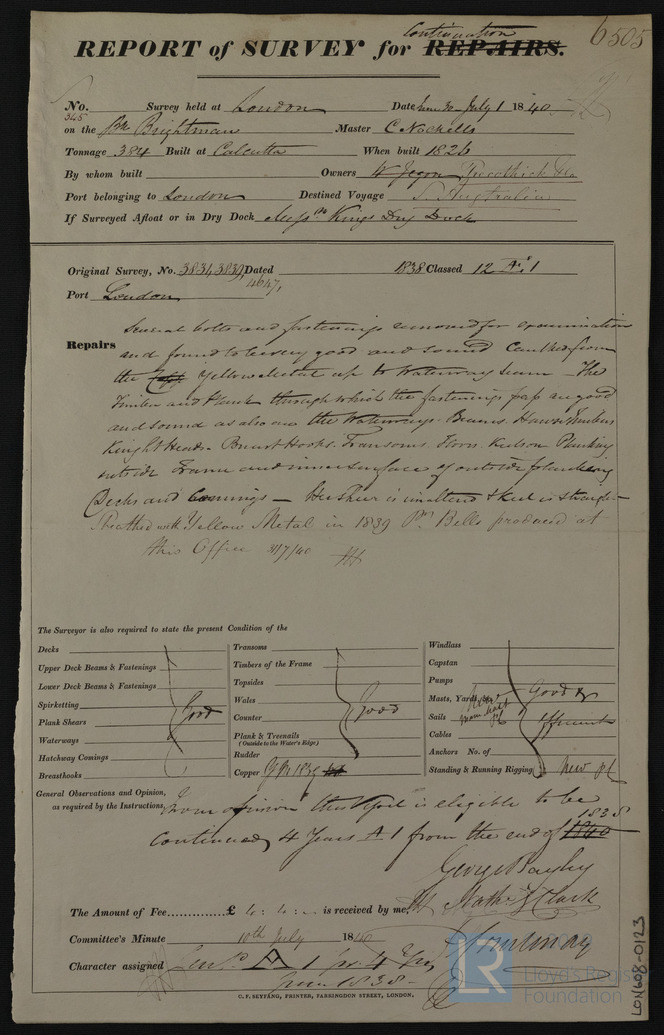 Continuation
6505
REPORT of SURVEY for REPAIRS.
No. 345 Survey held at London Date June 30 July 1 1840
on the Bk Brightman Master C Nockells
Tonnage 384 Built at Calcutta When built 1826
By whom built Owners
Port belonging to London Destined Voyage S. Australia
If Surveyed Afloat or in Dry Dock Kings Dry Dock
Original Survey, No. 3834, 3839 Dated 1838 Classed 12 A 1
4647,
Port London
Repairs Several bolts and fastenings removed for examination
and found to be very good and sound Caulked from
the Yellow Metal up to Waterway seam - The
Timber and Plank through which the fastenings pass are good
and sound as also are the Waterways. Beams. Hawse Timbers
Knight Heads. Breast Hooks. Transoms. Floors. Kelson Planking
outside Frame and inner surface of outside planking
Decks and Comings - Her Sheer is unaltered & Keel is straight -
Sheathed with Yellow Metal in 1839 Bills produced at
this Office 31/7/40
The Surveyor is also required to state the present Condition of the
Decks
Upper Deck Beams & Fastenings
Lower Deck Beams & Fastenings
Spirketting
Plank Shears
Waterways
Hatchway Comings
Breasthooks
Good
Transoms
Timbers of the Frame
Topsides
Wales
Counter
Plank & Treenails
(Outside to the Water's Edge)
Rudder
Copper Y M 1839
Good
Windlass
Capstan
Pumps
Masts, Yards, &c.
Sails
Cables
Anchors No. of
Standing & Running Rigging
Good
efficient
new pt
General Observations and Opinion,
as required by the Instructions,
From opinion this Vessel is eligible to be
1838
Continued 4 Years A 1 from the end of 1840
George Bayley
Nathl G Clark
The Amount of Fee............£ 4 : 4 : - is received by me,
Committee's Minute 10th July 1840
Character assigned A 1 for 4 Yrs
from 1838 -
C. F. SEYFANG, PRINTER, FARRINGDON STREET, LONDON.
LR
Lloyd's Register
Foundation
LON608-0123